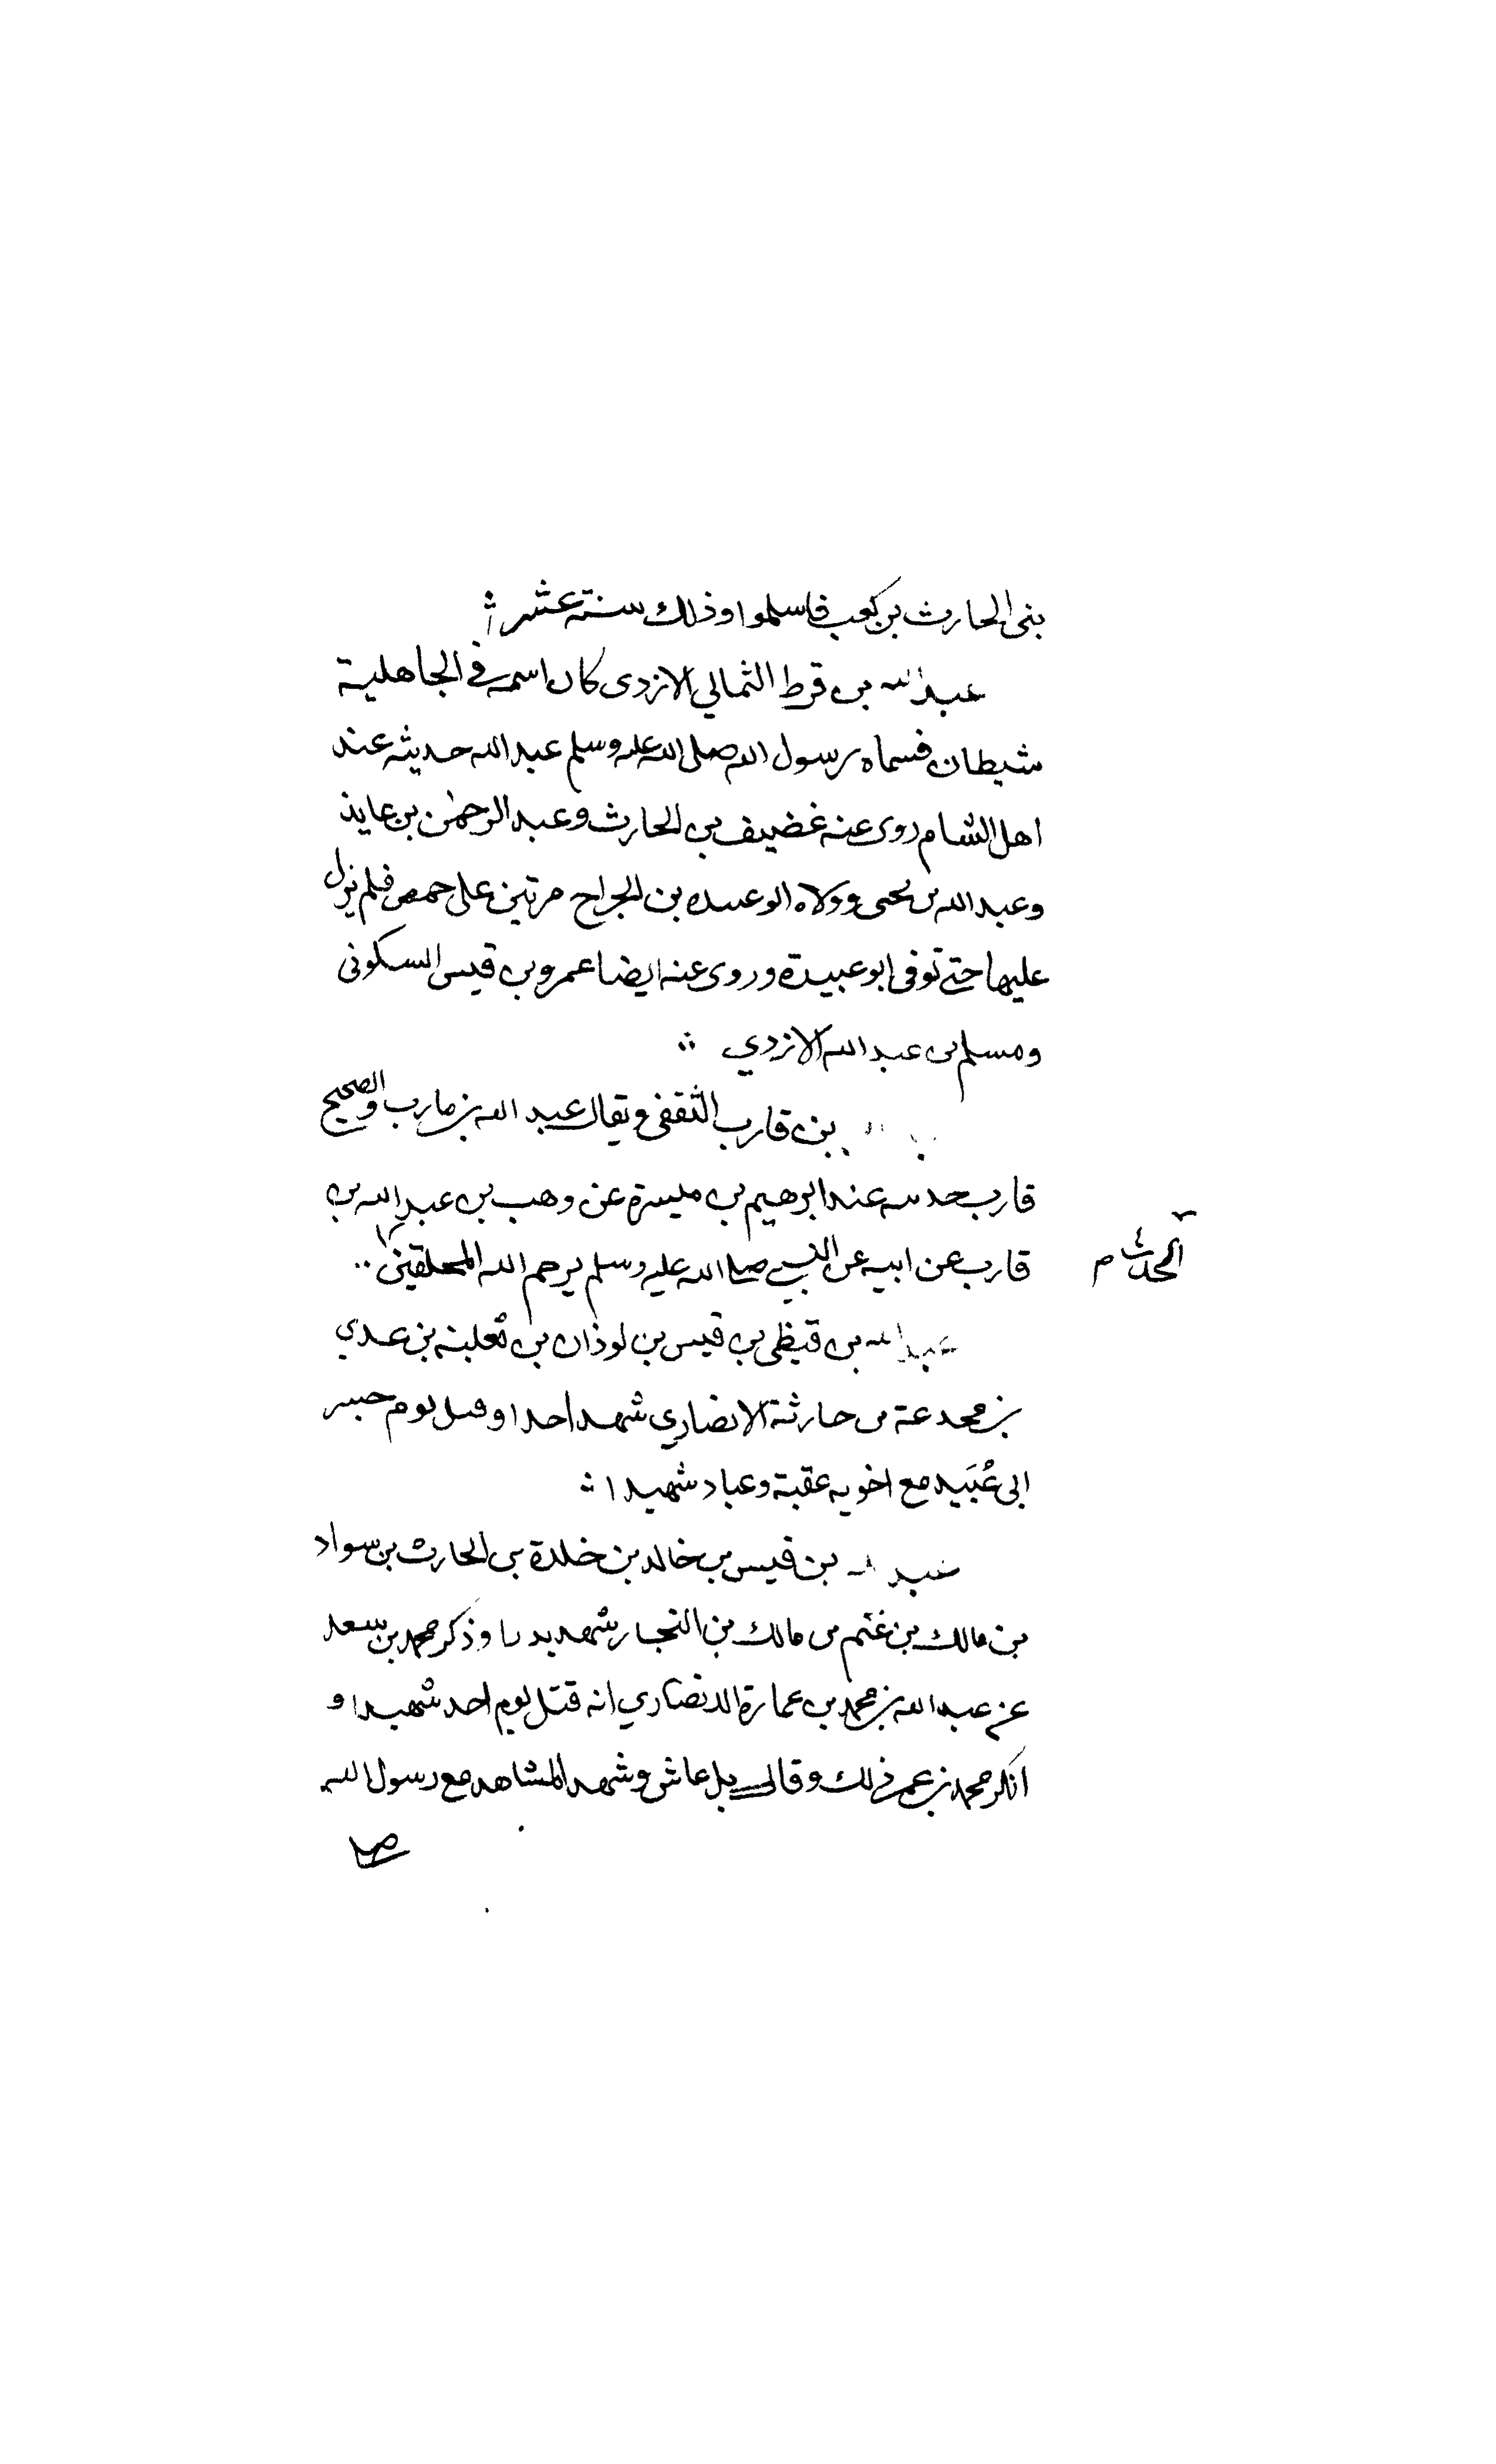 بنى الحارث بن كعب فاسلموا وذلك سنة عشر ؞
عبد الله بن قرط الثمالي الازدى كان اسمه في الجاهلية
شيطان فسماه رسول الله صلى الله عليه وسلم عبد الله حديثه عند
اهل الشام روى عنه غضيف بن الحارث وعبد الرحمن بن عايذ
وعبد الله بن يحيى وولاه ابو عبيده بن الجراح مرتين على حمص فلم يزل
عليها حتى توفى ابو عبيدة وروى عنه ايضا عمرو بن قيس السكونى
ومسلم بن عبد الله الازدي ؞
بن قارب الثقفى ويقال عبد الله بن مارب والصحيح
قارب حديثه عند ابرهيم بن ميسرة عن وهب بن عبد الله بن
قارب عن ابيه عن النبي صلى الله عليه وسلم يرحم الله المحلقين
الحديث م
عبد الله بن قيظى بن قيس بن لوذان بن ثعلبة بن عدي
بن مجدعة بن حارثة الانصاري شهد احدا وقتل يوم جسر
ابى عُبَيد مع اخويه عقبة وعباد شهيدا ؞
عبد الله بن قيس بن خالد بن خلدة بن الحارث بن سواد
بن مالك بن غنم بن مالك بن النجار شهد بدرا وذكر محمد بن سعد
عن عبد الله بن محمد بن عمارة الانصاري انه قتل يوم احد شهيدا و
انكر محمد بن عمر ذلك وقال بل عاش وشهد المشاهد مع رسول الله
صلى